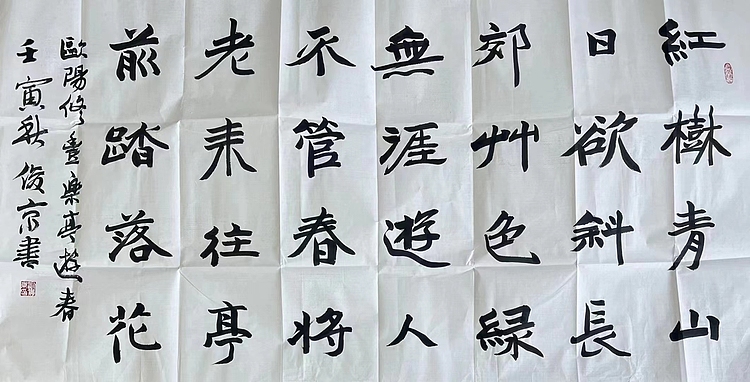 紅樹青山
日欲斜長
郊艸色緑
無涯遊人
不管春將
老来往亭
前踏落花
歐陽修豐樂亭遊春
壬寅秋俊京書